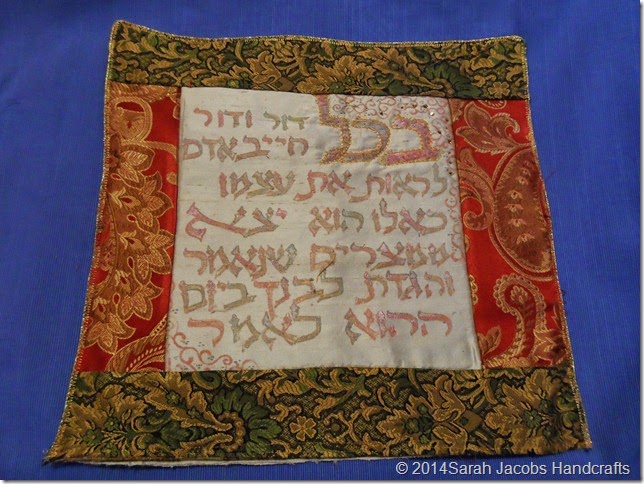 בכל דור ודור
חייב אדם
לראות את עצמו
כאלו הוא יצא
ממצרים שנאמר
והגדת לבנך ביום
ההוא לאמר
© 2014Sarah Jacobs Handcrafts